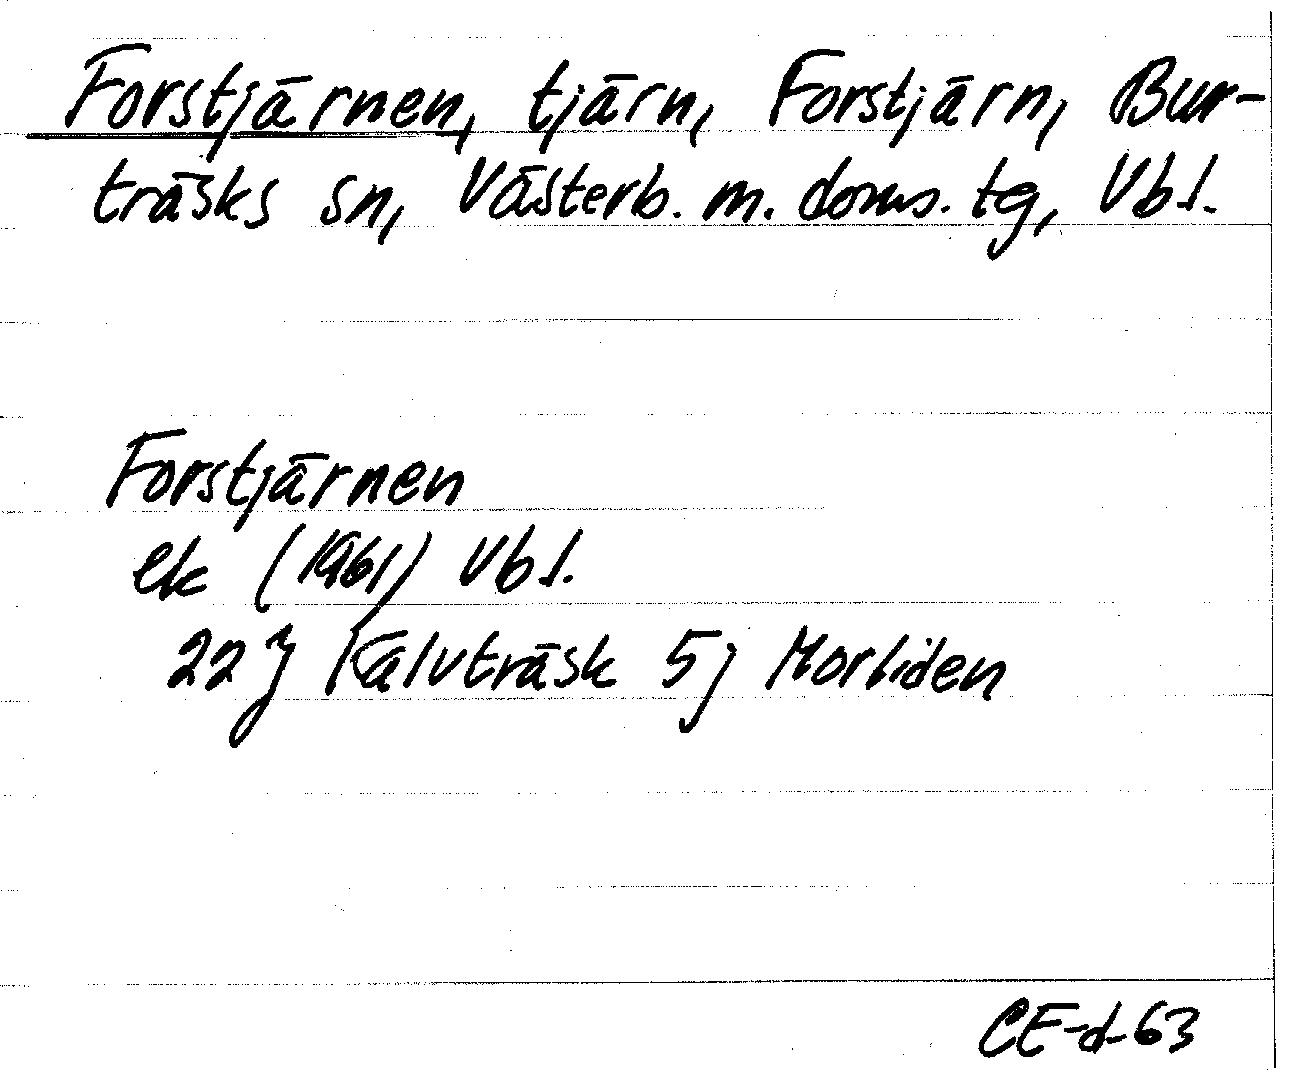 Forstjärnen, tjärn, Forstjärn, Bur-
träsks sn, Västerb. m. doms. tg, Vbl.
Forstjärnen
ek (1961) Vbl.
22J Kalvträsk 5j Morliden
CE-d-63